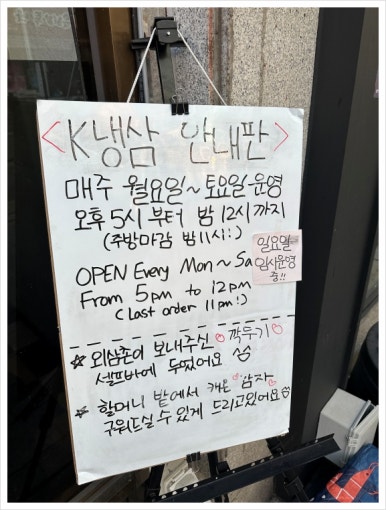 <K냉삼 안내판>
매주 월요일~토요일 운영
오후 5시 부터 밤 12시 까지
(주방마감 밤 11시:)
일요일
임시운영
중!!
OPEN Every Mon ~ Sa
From 5pm to 12pm
(Last order 11pm:)
☆ 외삼촌이 보내주신 깍두기
셀프바에 두었어요
☆ 할머니 밭에서 캐온 감자
구워드실 수 있게 드리고있어요